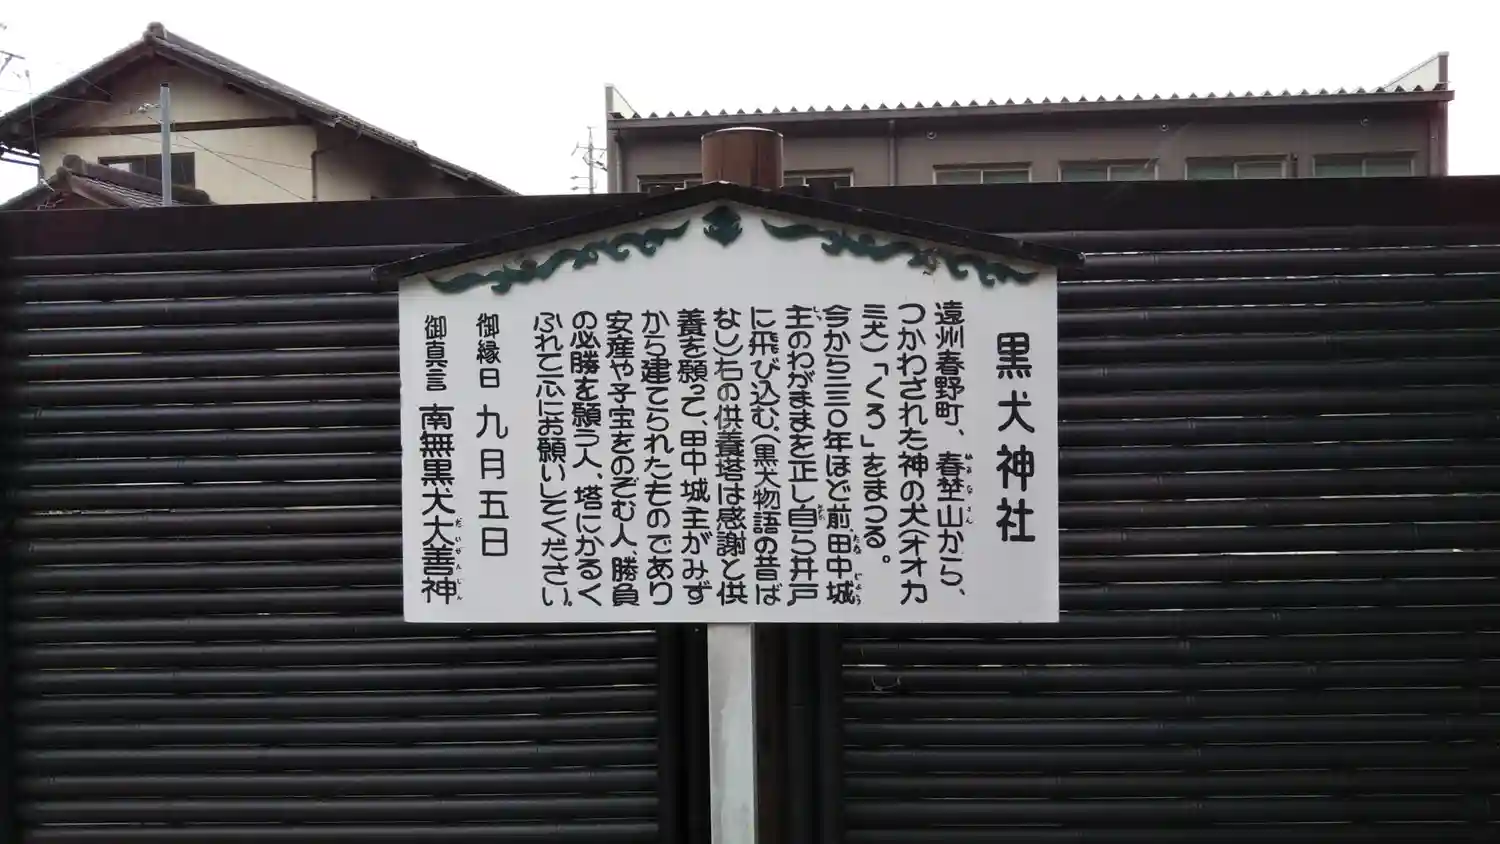 黒犬神社
遠州春野町、春埜山から、
つかわされた神の犬(オオカ
ミ犬)「くろ」をまつる。
今から三三〇年ほど前、田中城
主のわがままを正し自ら井戸
に飛び込む。(黒犬物語の昔ば
なし)右の供養塔は感謝と供
養を願って、田中城主がみず
から建てられたものであり
安産や子宝をのぞむ人、勝負
の必勝を願う人、塔にかるく
ふれて一心にお願いしてください。
御縁日 九月五日
御真言 南無黒犬大善神